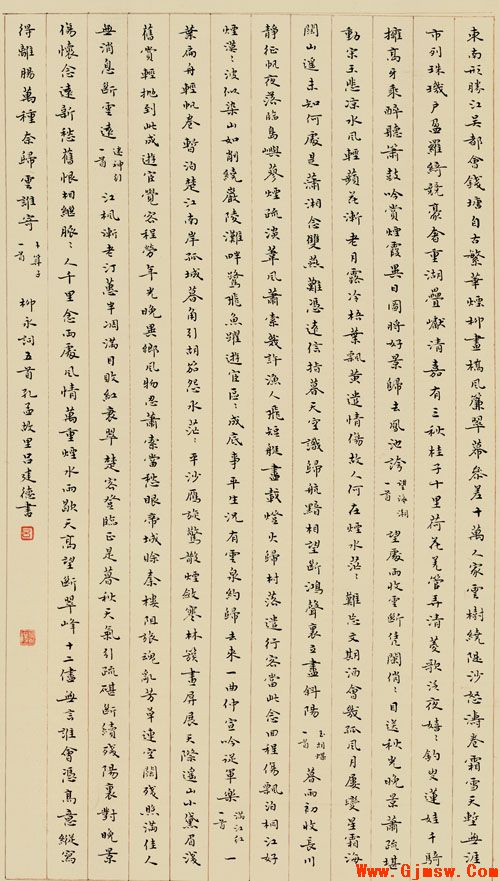 東南形勝江吳都會錢塘自古繁華煙柳畫橋風簾翠幕參差十萬人家雲樹繞堤沙怒濤卷霜雪天塹無涯
市列珠璣戶盈羅綺競豪奢重湖疊巘清嘉有三秋桂子十里荷花羌管弄清菱歌泛夜嬉〻釣叟蓮娃千騎
擁高牙乘醉聽簫鼓吟賞煙霞異日圖將好景歸去鳳池誇 望海潮一首 望處雨收雲斷憑闌悄〻目送秋光晚景蕭疏堪
動宋玉悲涼水風輕蘋花漸老月露冷梧葉飄黃遣情傷故人何在煙水茫〻難忘文期酒會幾孤風月屢變星霜海
闊山遙未知何處是瀟湘念雙燕難憑遠信指暮天空識歸航黯相望斷鴻聲裏立盡斜陽 玉蝴蝶一首 暮雨初收長川
靜征帆夜落臨島嶼蓼煙疏淡葦風蕭索幾許漁人飛短艇盡載燈火歸村落遣行客當此念回程傷飄泊桐江好
煙漠〻波似染山如削繞嚴陵灘畔鷺飛魚躍遊宦區〻成底事平生況有雲泉約歸去來一曲仲宣吟從軍樂 滿江紅一首 一
葉扁舟輕帆卷暫泊楚江南岸孤城暮角引胡笳怨水茫〻平沙鴈旋驚散煙斂寒林簇畫屏展天際遙山小黛眉淺
舊賞輕拋到此成遊宦覺客程勞年光晚異鄉風物忍蕭索當愁眼帝城賒秦樓阻旅魂亂芳草連空闊殘照滿佳人
無消息斷雲遠 迷神引一首 江楓漸老汀蕙半凋滿目敗紅衰翠楚客登臨正是暮秋天氣引疏碪斷續殘陽裏對晚景
傷懷念遠新愁舊恨相繼脉〻人千里念兩處風情萬重煙水雨歇天高望斷翠峰十二儘無言誰會憑高意縱寫
得離腸萬種奈歸雲誰寄 卜算子一首 柳永詞五首孔孟故里呂建德書
www.Gjmsw.com